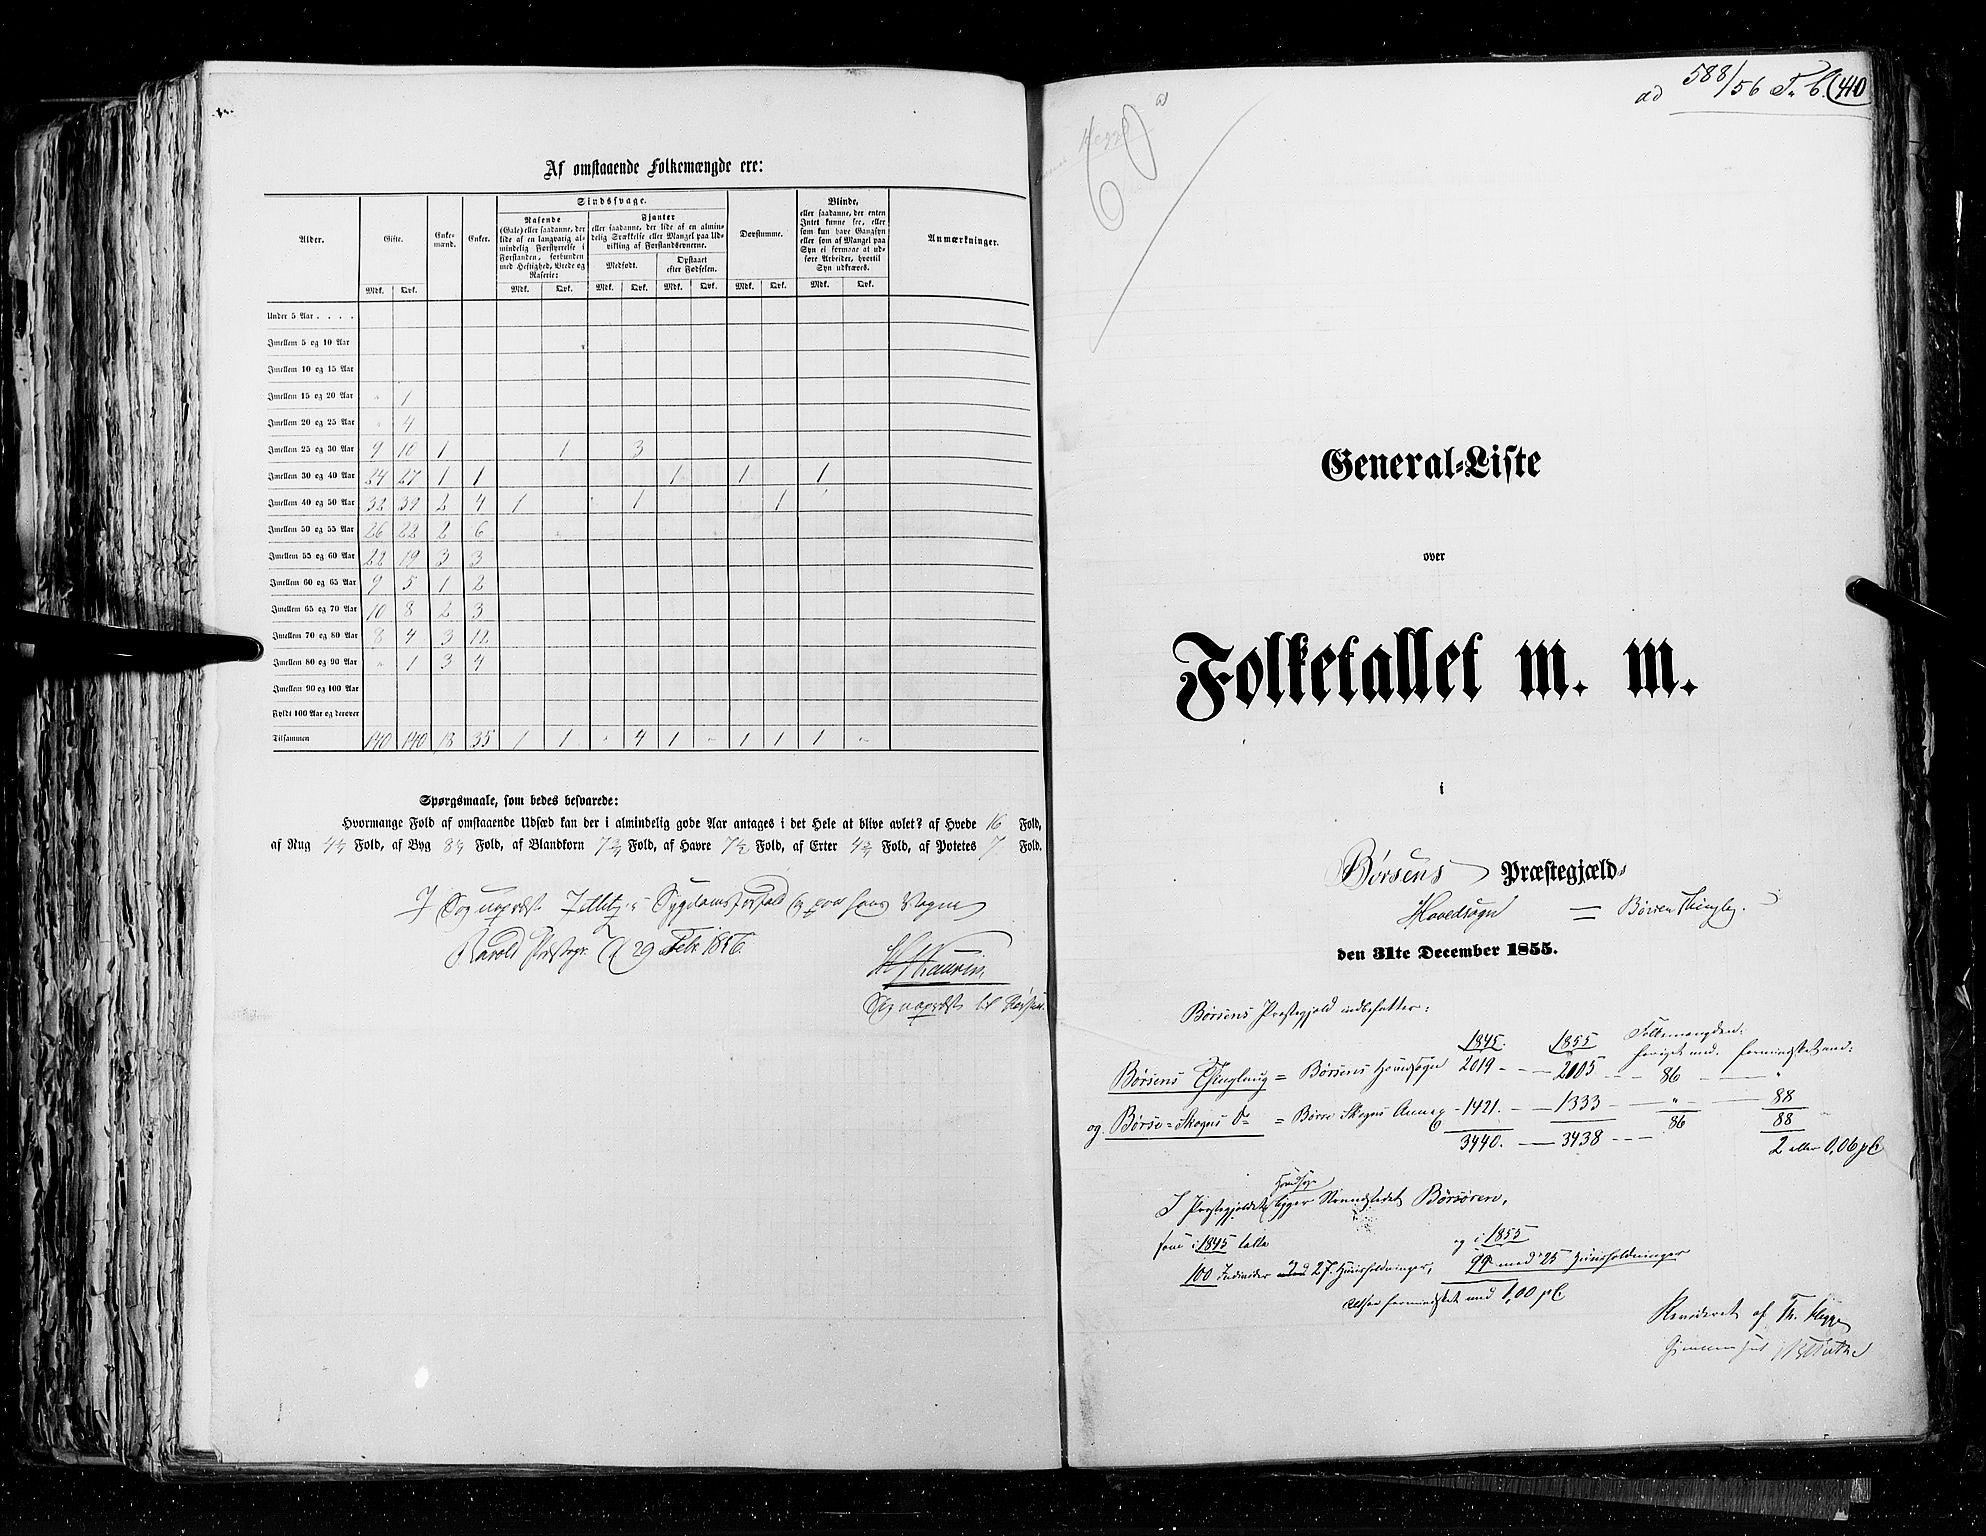 Af omstaaende Folkemængde ere:
Alder. Gifte. Enke-mænd. Enker. Sindssvage. Døvstumme. Blinde, eller saadanne, der enten Intet kunne see, eller som kun have Gangsyn eller som af Mangel paa Syn ei formaae at udføre Arbeider, hvortil Syn udkræves. Anmærkninger.
Rasende (Gale) eller saadanne, der lide af en langvarig almindelig Forstyrrelse i Forstanden, forbunden med Heftighed, Vrede og Raserie: Fjanter eller saadanne, der lide af en almindelig Svækkelse eller Mangel paa Udvikling af Forstandsevnerne.
Medfødt. Opstaaet efter Fødselen.
Mdk. Qvk. Mdk. Qvk. Mdk. Qvk. Mdk. Qvk. Mdk. Qvk. Mdk. Qvk.
Under 5 Aar . . . .
Imellem 5 og 10 Aar
Imellem 10 og 15 Aar
Imellem 15 og 20 Aar " 1
Imellem 20 og 25 Aar " 4
Imellem 25 og 30 Aar 9 10 1 1 3
Imellem 30 og 40 Aar 24 27 1 1 1 1 1
Imellem 40 og 50 Aar 32 39 2 4 1 1 1
Imellem 50 og 55 Aar 26 22 2 6
Imellem 55 og 60 Aar 22 19 3 3
Imellem 60 og 65 Aar 9 5 1 2
Imellem 65 og 70 Aar 10 8 2 3
Imellem 70 og 80 Aar 8 4 3 12
Imellem 80 og 90 Aar " 1 3 4
Imellem 90 og 100 Aar
Fyldt 100 Aar og derover
Tilsammen 140 140 18 35 1 1 " 4 1 " 1 1 1 "
Spørgsmaale, som bedes besvarede:
Hvormange Fold af omstaaende Udsæd kan der i almindelig gode Aar antages i det Hele at blive avlet? af Hvede 16 Fold,
af Rug Fold, af Byg Fold, af Blandkorn Fold, af Havre Fold, af Erter Fold, af Potetes 7 Fold.
I Sognepræst Sygdomsforfald og paa hans Vegne
29 Febr 1856.
Sognepræst til
ad 588/56 F. C. 410
General-Liste
over
Folketallet m. m.
i
Børsens Præstegjæld
Hovedsogn = Børsen Thinglag.
den 31te December 1855.
Børsens Prestegjeld indbefatter:
1845. 1855 Folkemængden:
forøget med. formindsket med:
Børsens Thinglaug = Børsens Hovedsogn 2019 - - 2105 - - 86 - "
og Børse-Skogns do = Børse Skogns Annex - 1421. - 1333 - " - 88
86 88
3440. - 3438 - - - 2 eller 0,06 pC
I Prestegjeldets Hovedsogn ligger Strandstedet Børsøren,
som i 1845 talte og i 1855
100 Individer 27. Huusholdninger, 99 med 25 Huusholdninger
altsaa formindsket med 1,00 pC
Revideret af Th. Hegge